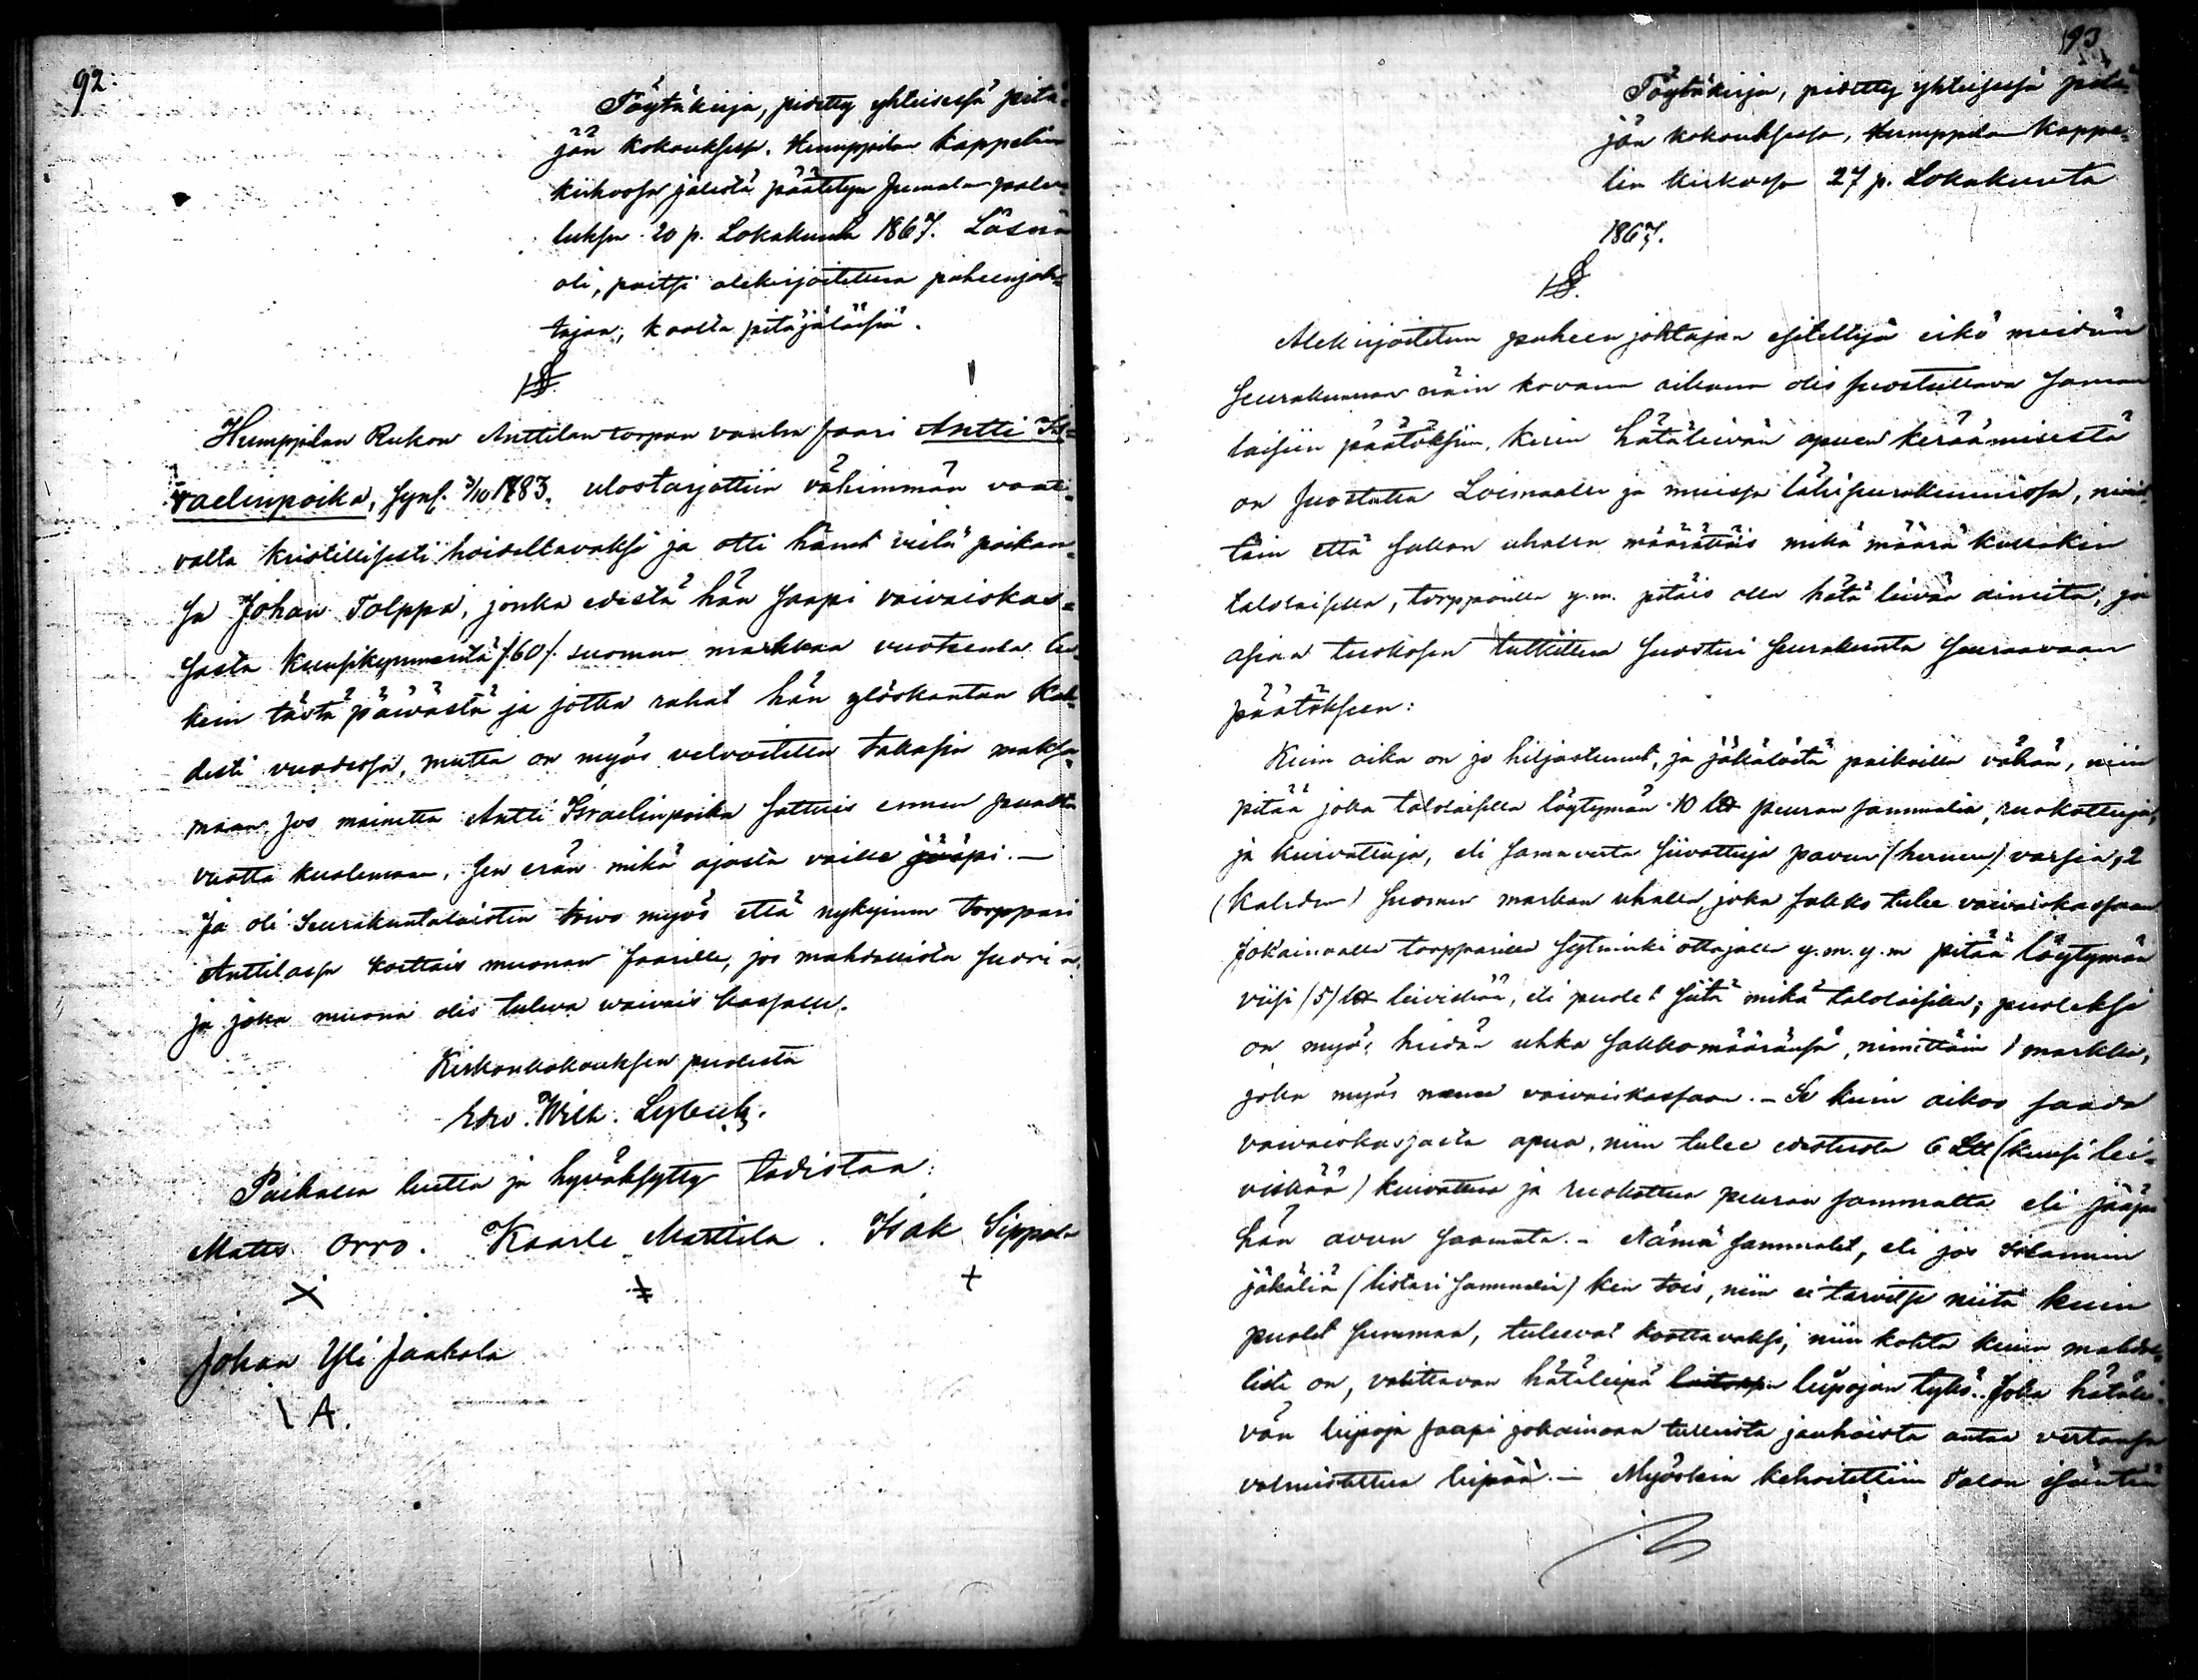 92.
Pöytäkirja, pidetty yhteisessä pitä=
jän kokouksessa, Humppilan kappelin
kirkossa jälestä päätetyn Jumalan palve=
luksen 20 p. Lokakuuta 1867. Läsnä
oli, paitsi alekirjoitettua puheenjoh=
tajaa, koolla pitäjäläisiä.
1 §.
Humppilan Rukon Anttilan torpan vanha faari Antti Is=
raelinpoika, synt. 3/10 1783, ulostarjottiin vähimmän vaati=
valta kristillisesti hoidettavaksi ja otti hänet vielä poikan=
sa Johan Tolppa, jonka edestä hän saapi vaivaiskas=
sasta kuusikymmentä /60/ suomen markkaa vuotseensa lu=
kein tästä päivästä ja jotka rahat hän ylöskantaa kah=
desti vuodessa, mutta on myös velvoitettu takasin maksa=
maan, jos mainittu Antti Israelinpoika sattuis ennen puolta
vuotta kuolemaan, sen erän mikä ajasta vaille jääpi. —
Ja oli Seurakuntalaisten toivo myös että nykyinen torppari
Anttilassa koettais muonan faarille, jos mahdollista suoria,
ja joka muona olis tuleva waivais kassalle.
Kirkonkokouksen puolesta
Edv. Wilh. Lybeck.
Paikalla luettu ja hyväksytty todistaa:
Matts Orro. Kaarle Marttila. Isak Sippola
Johan Yli Jaakola
I A.
93
Pöytäkirja, pidetty yhteisessä pitä=
jän kokouksessa, Humppilan kappe=
lin kirkossa 27 p. Lokakuuta
1867.
1 §.
Alekirjoitetun puheen johtajan esiteltyä eikö meidän
Seurakunnan näin kovana aikana olis suostuttava saman
laisiin päätöksiin, kuin hätäleivän apuen keräämisestä
on suostuttu Loimaalla ja muissa lähiseurakunnissa, nimit=
täin että sakon uhalla määrättäis mikä määrä kullakin
talolaisella, torpparilla y.m. pitäis olla hätä leivän aineita, ja
asian tutkittua suostui seurakunta seuraavaan
päätökseen:
Kuin aika on jo hiljastunut, ja jäkälöitä paikoilla vähän, niin
pitää joka talolaisella löytymän 10 peuran sammalia, ruokottuja,
ja kuivattuja, eli sama verta siivottuja pavun (hernen) varsia, 2
(kahden) Suomen markan uhalla, joka sakko tulee vaivaiskassaan
Jokainoalla torpparilla sytninki ottajalla y.m.y.m pitää löytymän
viisi /5/ leiviskää, eli puolet siitä mikä talolaisilla; puoleksi
on myös heidän uhka sakkomääränsä, nimittäin 1 markka,
joka myös menee vaivaiskassaan. — Se kuin aikoo saada
vaivaiskassasta apua, niin tulee edestuoda 6 (kuusi lei=
viskää) kuivattua ja ruokottua peuran sammalta eli jääpi
hän avun saamata. — Nämä sammalet, eli jos Islannin
jäkäliä (listari sammalia) ken tois, niin ei tarvitse niitä kuin
puolet summaa, tulewat koottavaksi, niin kohta kuin mahdol=
lista on, valittavan hätäleipä leipojan tykö. Joka hätälei=
vän leipoja saapi jokainoan tulleista jauhoista antaa vertansa
valmistettua leipää. — Myöskin kehoitettiin talon isäntiä